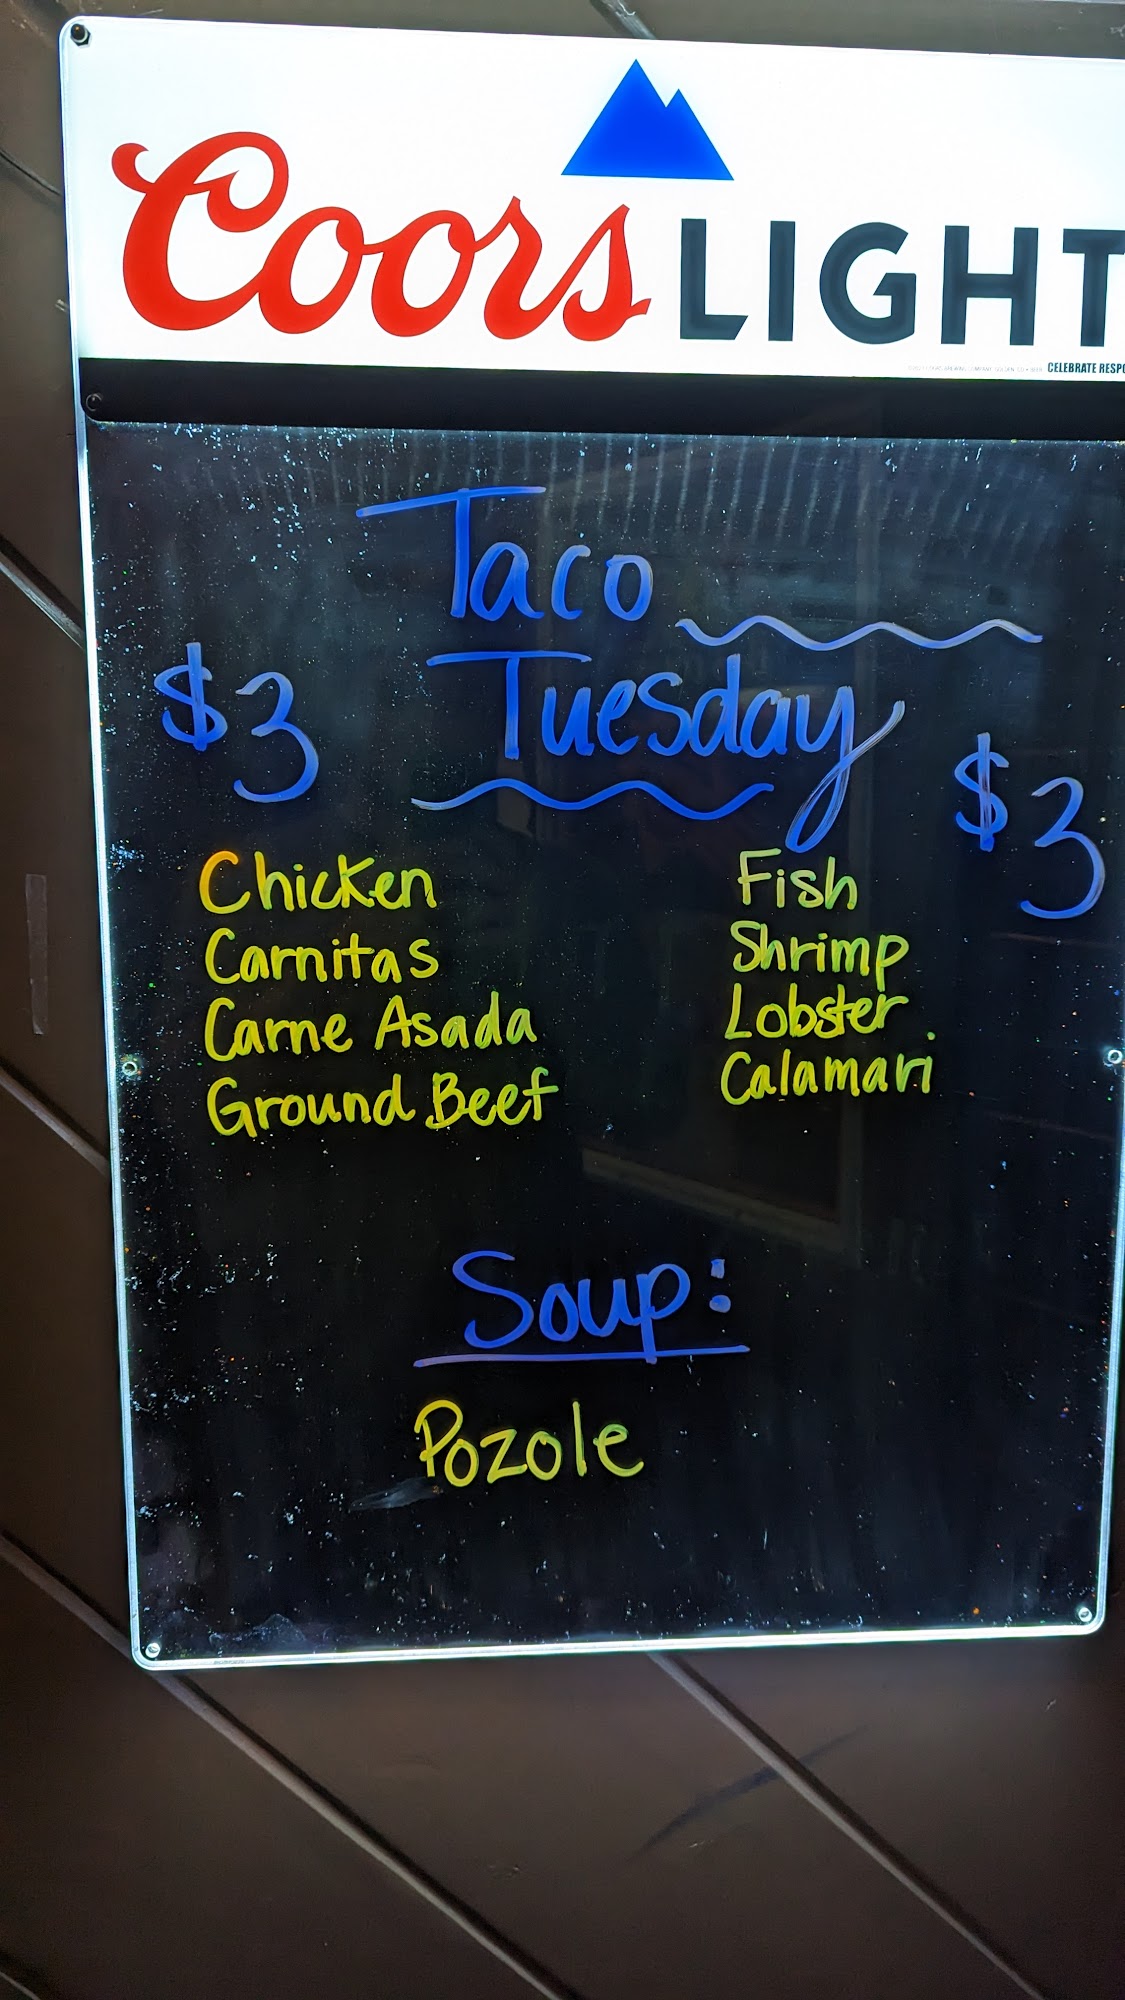 Coors LIGHT
CELEBRATE RESPO
Taco
$3 Tuesday $3
Chicken
Carnitas
Carne Asada
Ground Beef
Fish
Shrimp
Lobster
Calamari
Soup:
Pozole